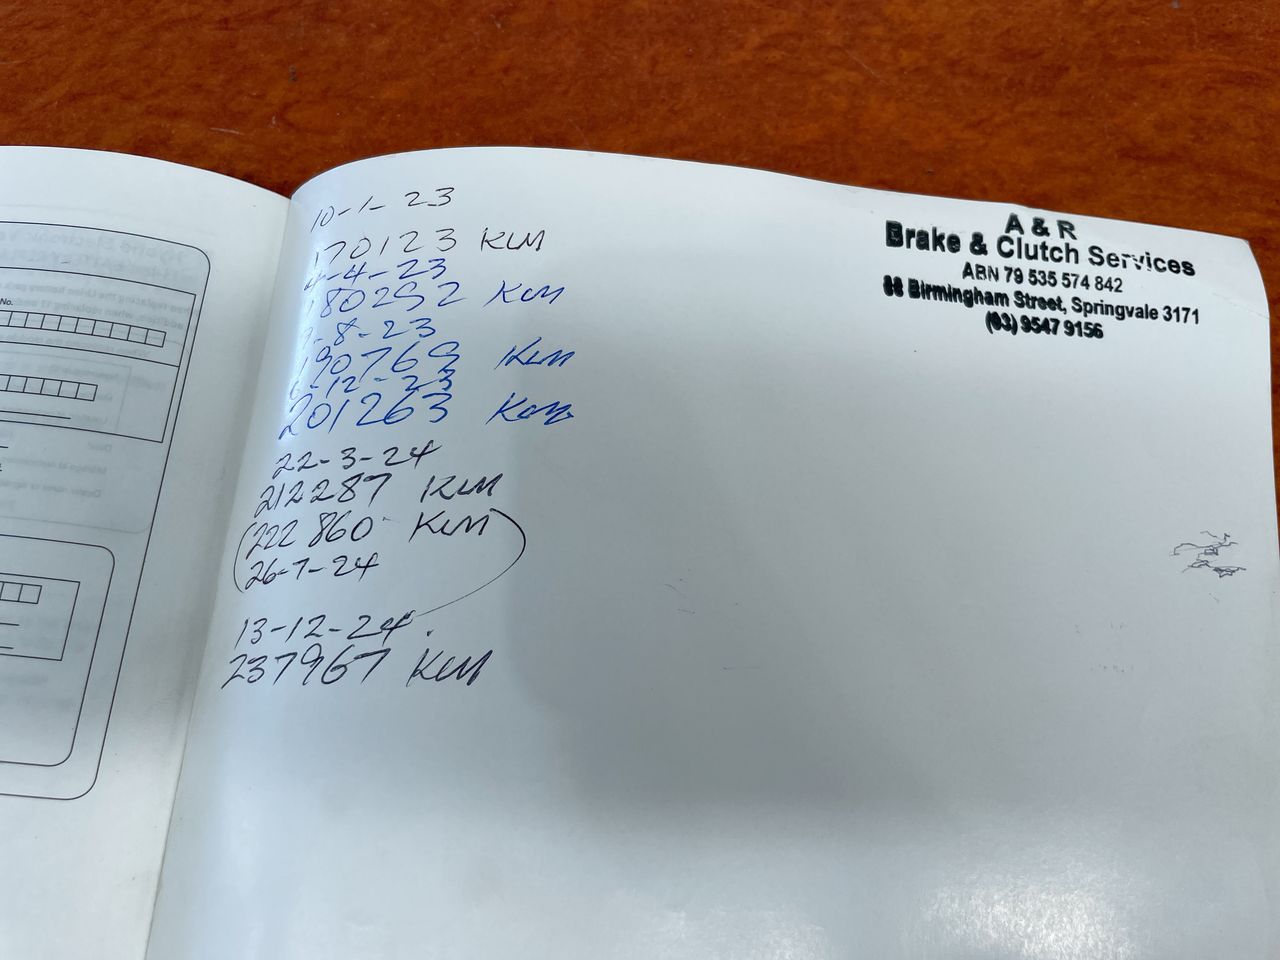 10-1-23
170123 KM
4-4-23
180292 KM
-8-23
190769 KM
6-12-23
201263 KM
22-3-24
212287 KM
(222 860 KM)
26-7-24
13-12-24.
237967 KM
A & R
Brake & Clutch Services
ABN 79 535 574 842
88 Birmingham Street, Springvale 3171
(03) 9547 9156
No.